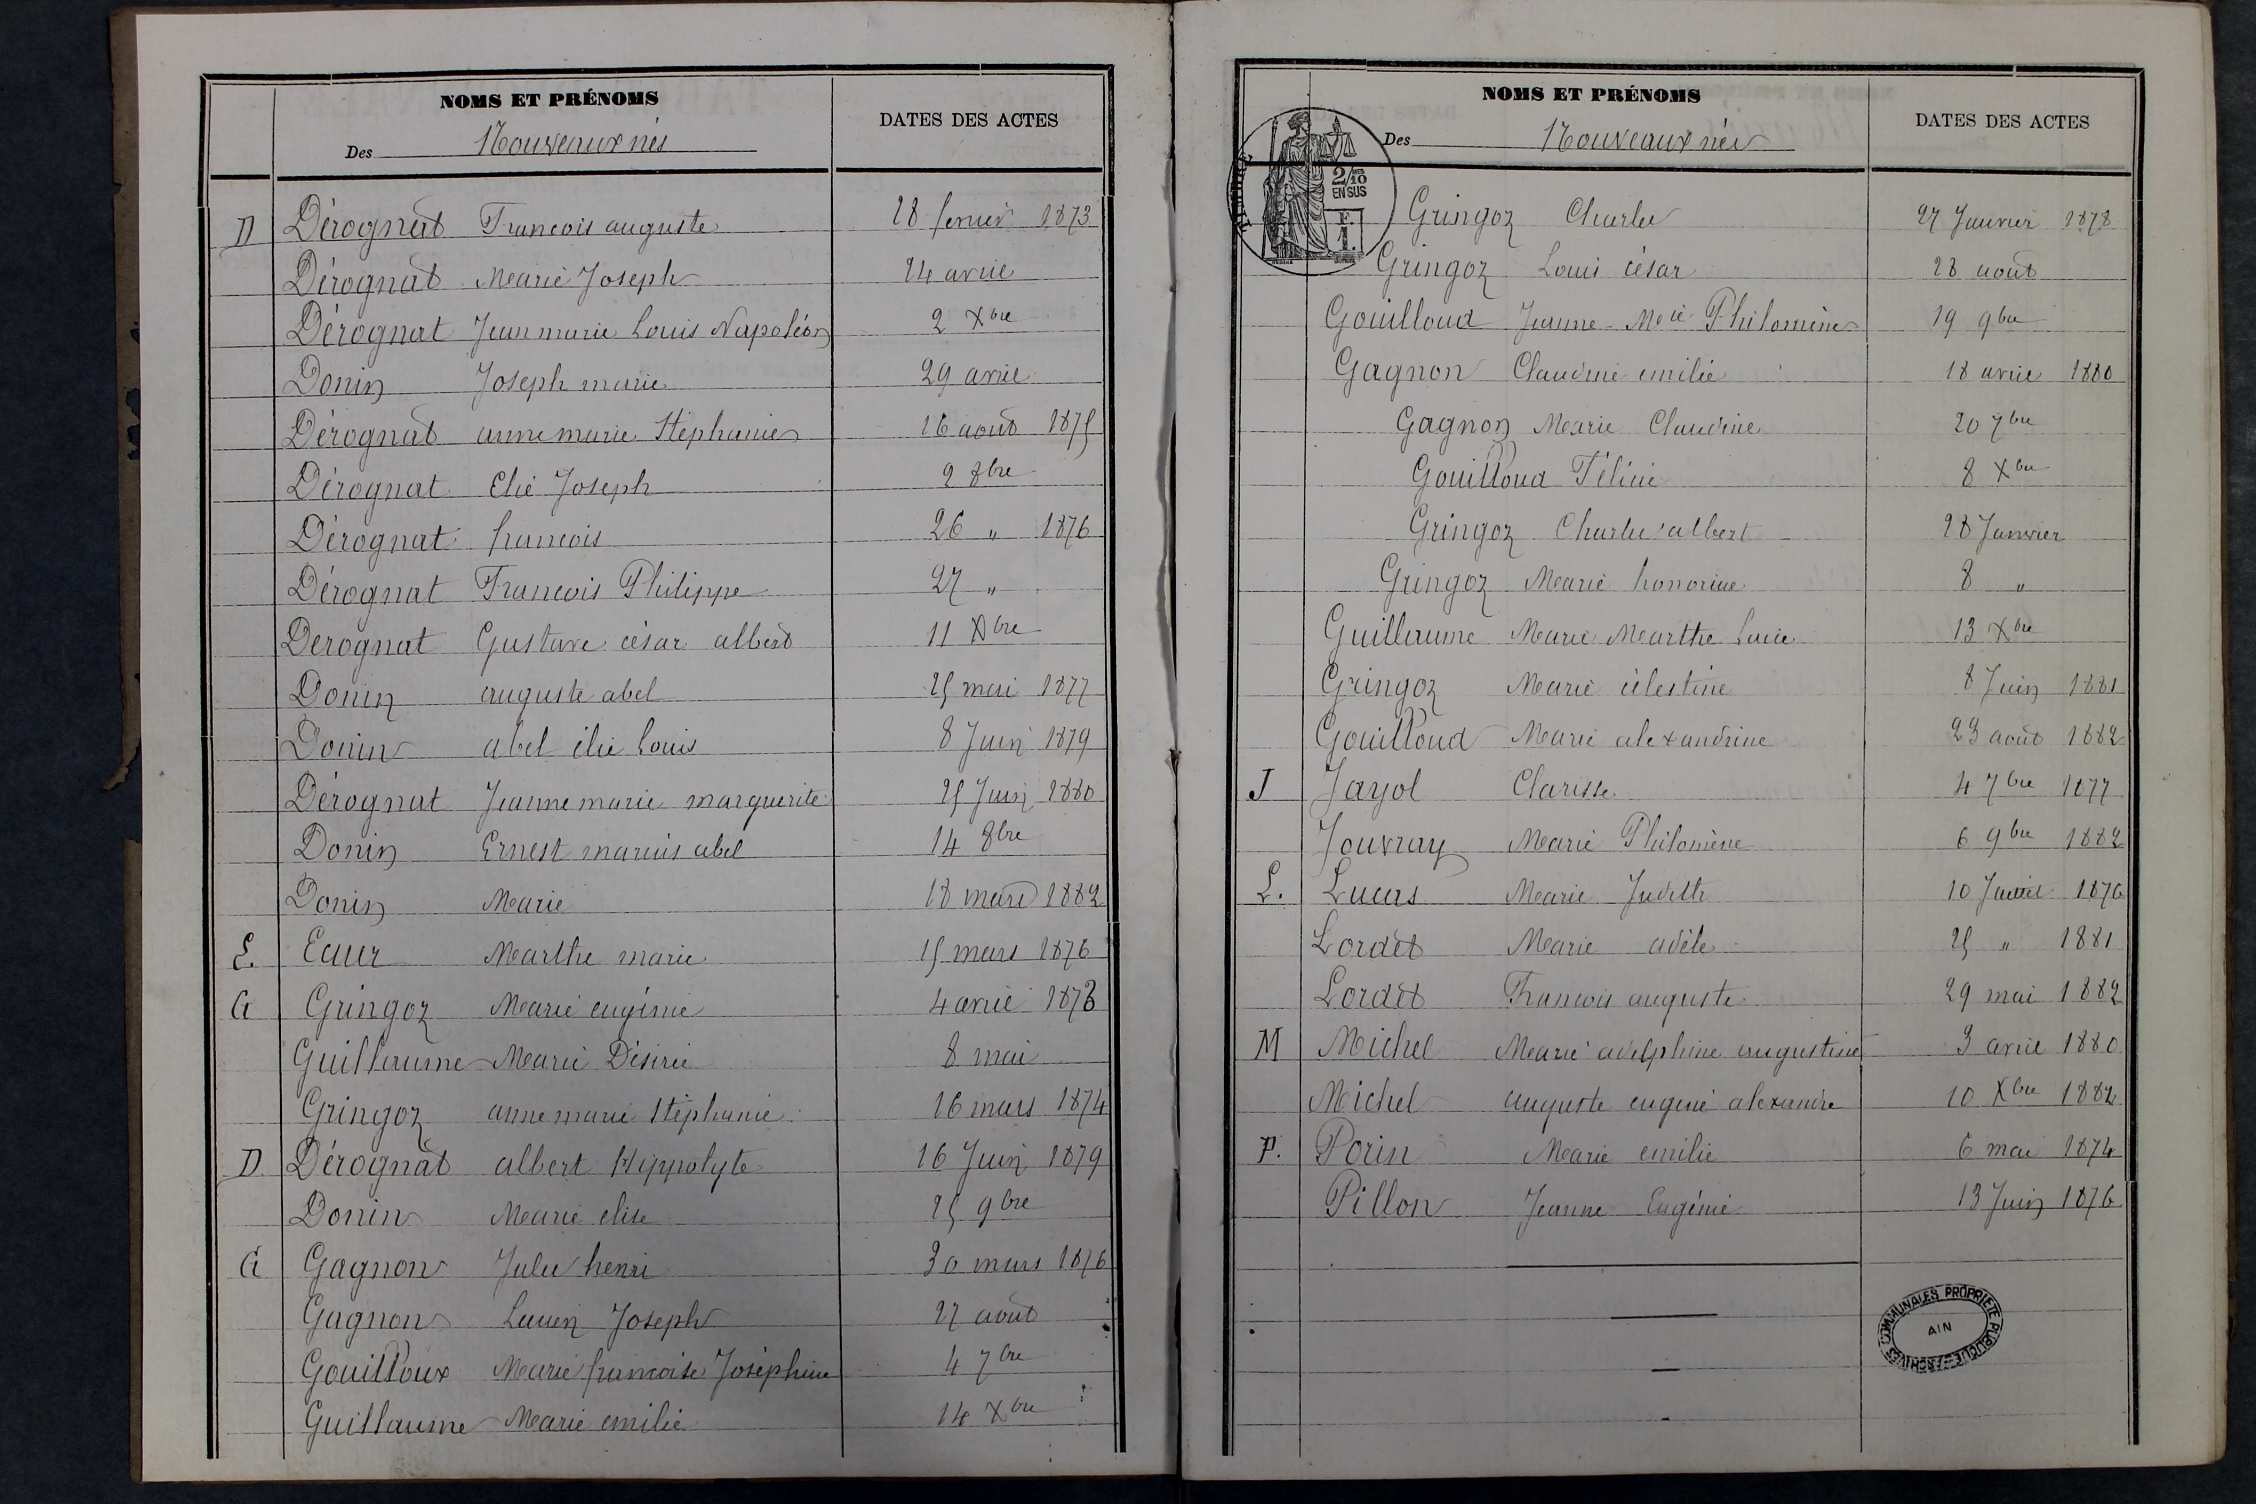 NOMS ET PRÉNOMS
Des Nouveaux nés
DATES DES ACTES
D Dérognat François auguste 28 fevrier 1873
Dérognat Marie Joseph 24 avril
Dérognat Jean marie Louis Napoléon 2 Xbre
Donin Joseph marie 29 avril
Dérognat anne marie Stéphanie 16 août 1875
Dérognat Elie Joseph 2 8bre
Dérognat francois 26 " 1876
Dérognat Francois Philippe 27 "
Derognat Gustave césar albert 11 Xbre
Donin auguste abel 25 mai 1877
Donin abel élie Louis 8 Juin 1879
Dérognat Jeanne marie marguerite 25 Juin 1880
Donin Ernest marius abel 14 8bre
Donin Marie 18 mars 1882
E. Ecuer Marthe marie 15 mars 1876
G Gringoz Marie eugénie 4 avril 1873
Guillaume Marie Désirée 8 mai
Gringoz anne marie Stéphanie 16 mars 1874
D. Dérognat albert Hippolyte 16 Juin 1879
Donin Marie elise 25 9bre
G Gagnon Jules henri 30 mars 1876
Gagnon Lucien Joseph 27 août
Gouilloux Marie francoise Joséphine 4 7bre
Guillaume Marie emilie 14 Xbre
NOMS ET PRÉNOMS
Des Nouveaux nés
DATES DES ACTES
TIMBRE
2/10 EN SUS
F.
1.
Gringoz Charles 27 Janvier 1878
Gringoz Louis césar 28 août
Gouilloud Jeanne-Mie Philomène 19 9bre
Gagnon Claudine emilie 18 avril 1880
Gagnon Marie Claudine 20 7bre
Gouilloud Félicie 8 Xbre
Gringoz Charles albert 28 Janvier
Gringoz Marie honorine 8 "
Guillaume Marie Marthe Lucie 13 Xbre
Gringoz Marie célestine 8 Juin 1881
Gouilloud Marie alexandrine 23 août 1882
J Jayol Clarisse 4 7bre 1877
Jouvray Marie Philomène 6 9bre 1882
L. Lucas Marie Judith 10 Juillet 1876
Lordet Marie adèle 25 " 1881
Lordet Francois auguste 29 mai 1882
M Michel Marie adelphine augustine 3 avril 1880
Michel auguste eugène alexandre 10 Xbre 1882
P. Porin Marie emilie 6 mai 1874
Pillon Jeanne Eugénie 13 Juin 1876
ARCHIVES COMMUNALES PROPRIETE PUBLIQUE
AIN